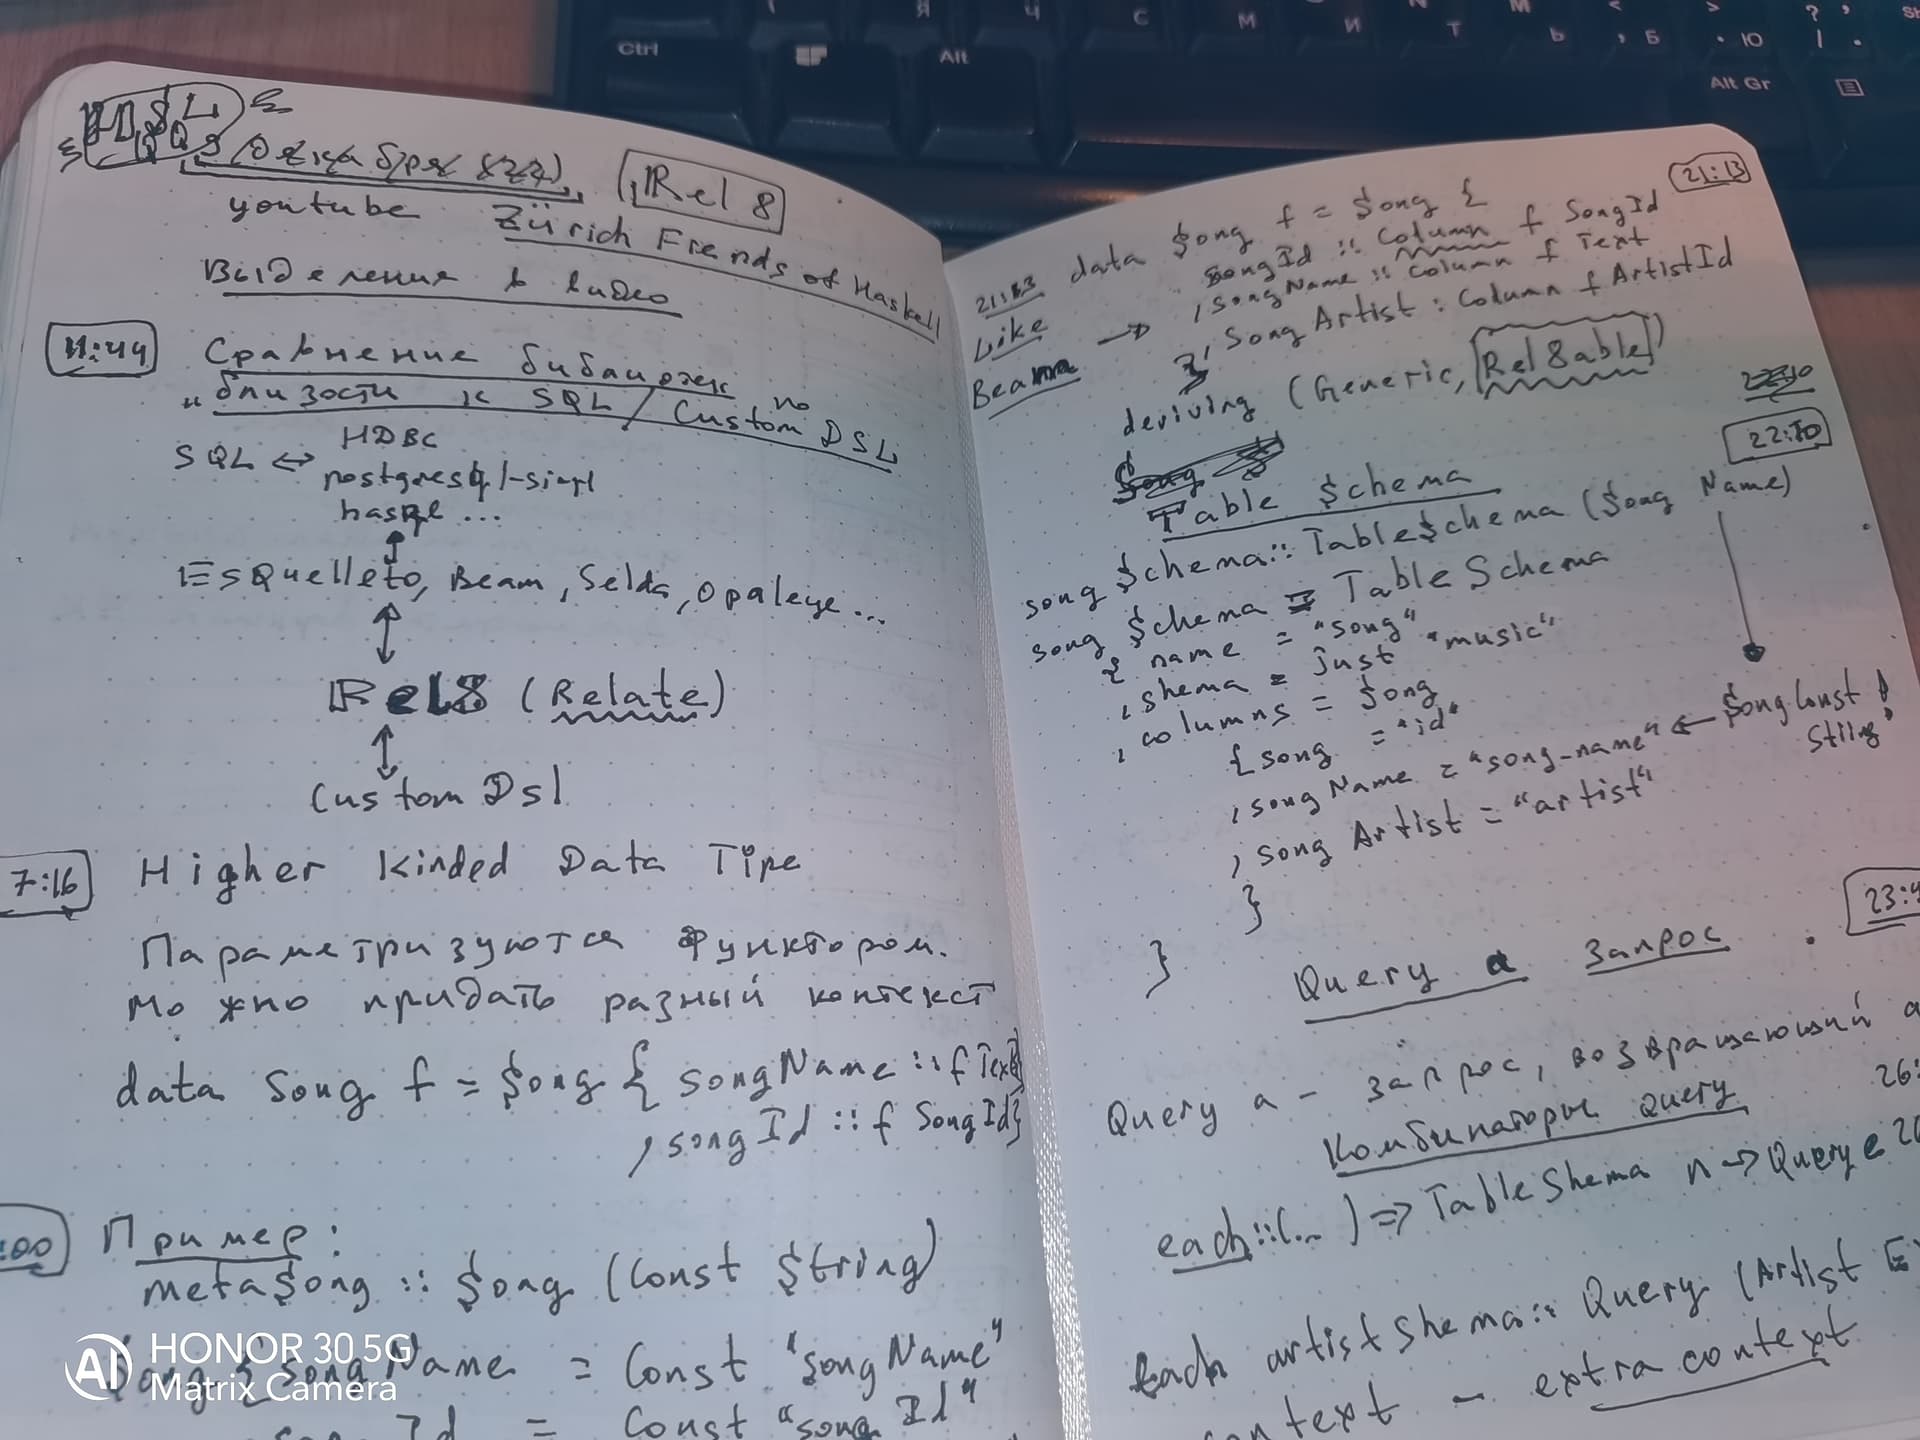 Rel 8
youtube Zürich Frends of Haskell
Выделения в видео
11:44
Сравнение библиотек по
"близости к SQL / Custom DSL
SQL ↔ HDBC
postgresql-simpl
hasql ...
Esquelleto, Beam, Selda, Opaleye...
Rel8 (Relate)
Custom Dsl
7:16
Higher Kinded Data Tipe
Параметризуются функтором.
Можно придать разный контекст
data Song f = Song { songName :: f Text
, songId :: f SongId}
:00
Пример:
metaSong :: Song (Const String)
Song { songName = Const "songName"
songId = Const "songId"
HONOR 30 5G
Matrix Camera
21:13
data Song f = Song {
songId :: Column f SongId
, songName :: Column f Text
, Song Artist : Column f ArtistId
}
Like
Beam →
deriving (Generic, Rel8able)
22:10
Table Schema
song Schema :: TableSchema (Song Name)
song Schema = Table Schema
{ name = "song"
, shema = just "music"
, columns = Song
{song = "id"
, songName = "song-name" ← Song Const
String
, song Artist = "artist"
}
}
23:4
Query a запрос
Query a - запрос, возвращающий a
Комбинаторы query
26:
each :: (... ) => TableShema n -> Query e
Each artistShema :: Query (Artist Ex
context - extra context
Ctrl
Alt
Alt Gr
Я
Ч
С
М
И
Т
Ь
Б
Ю